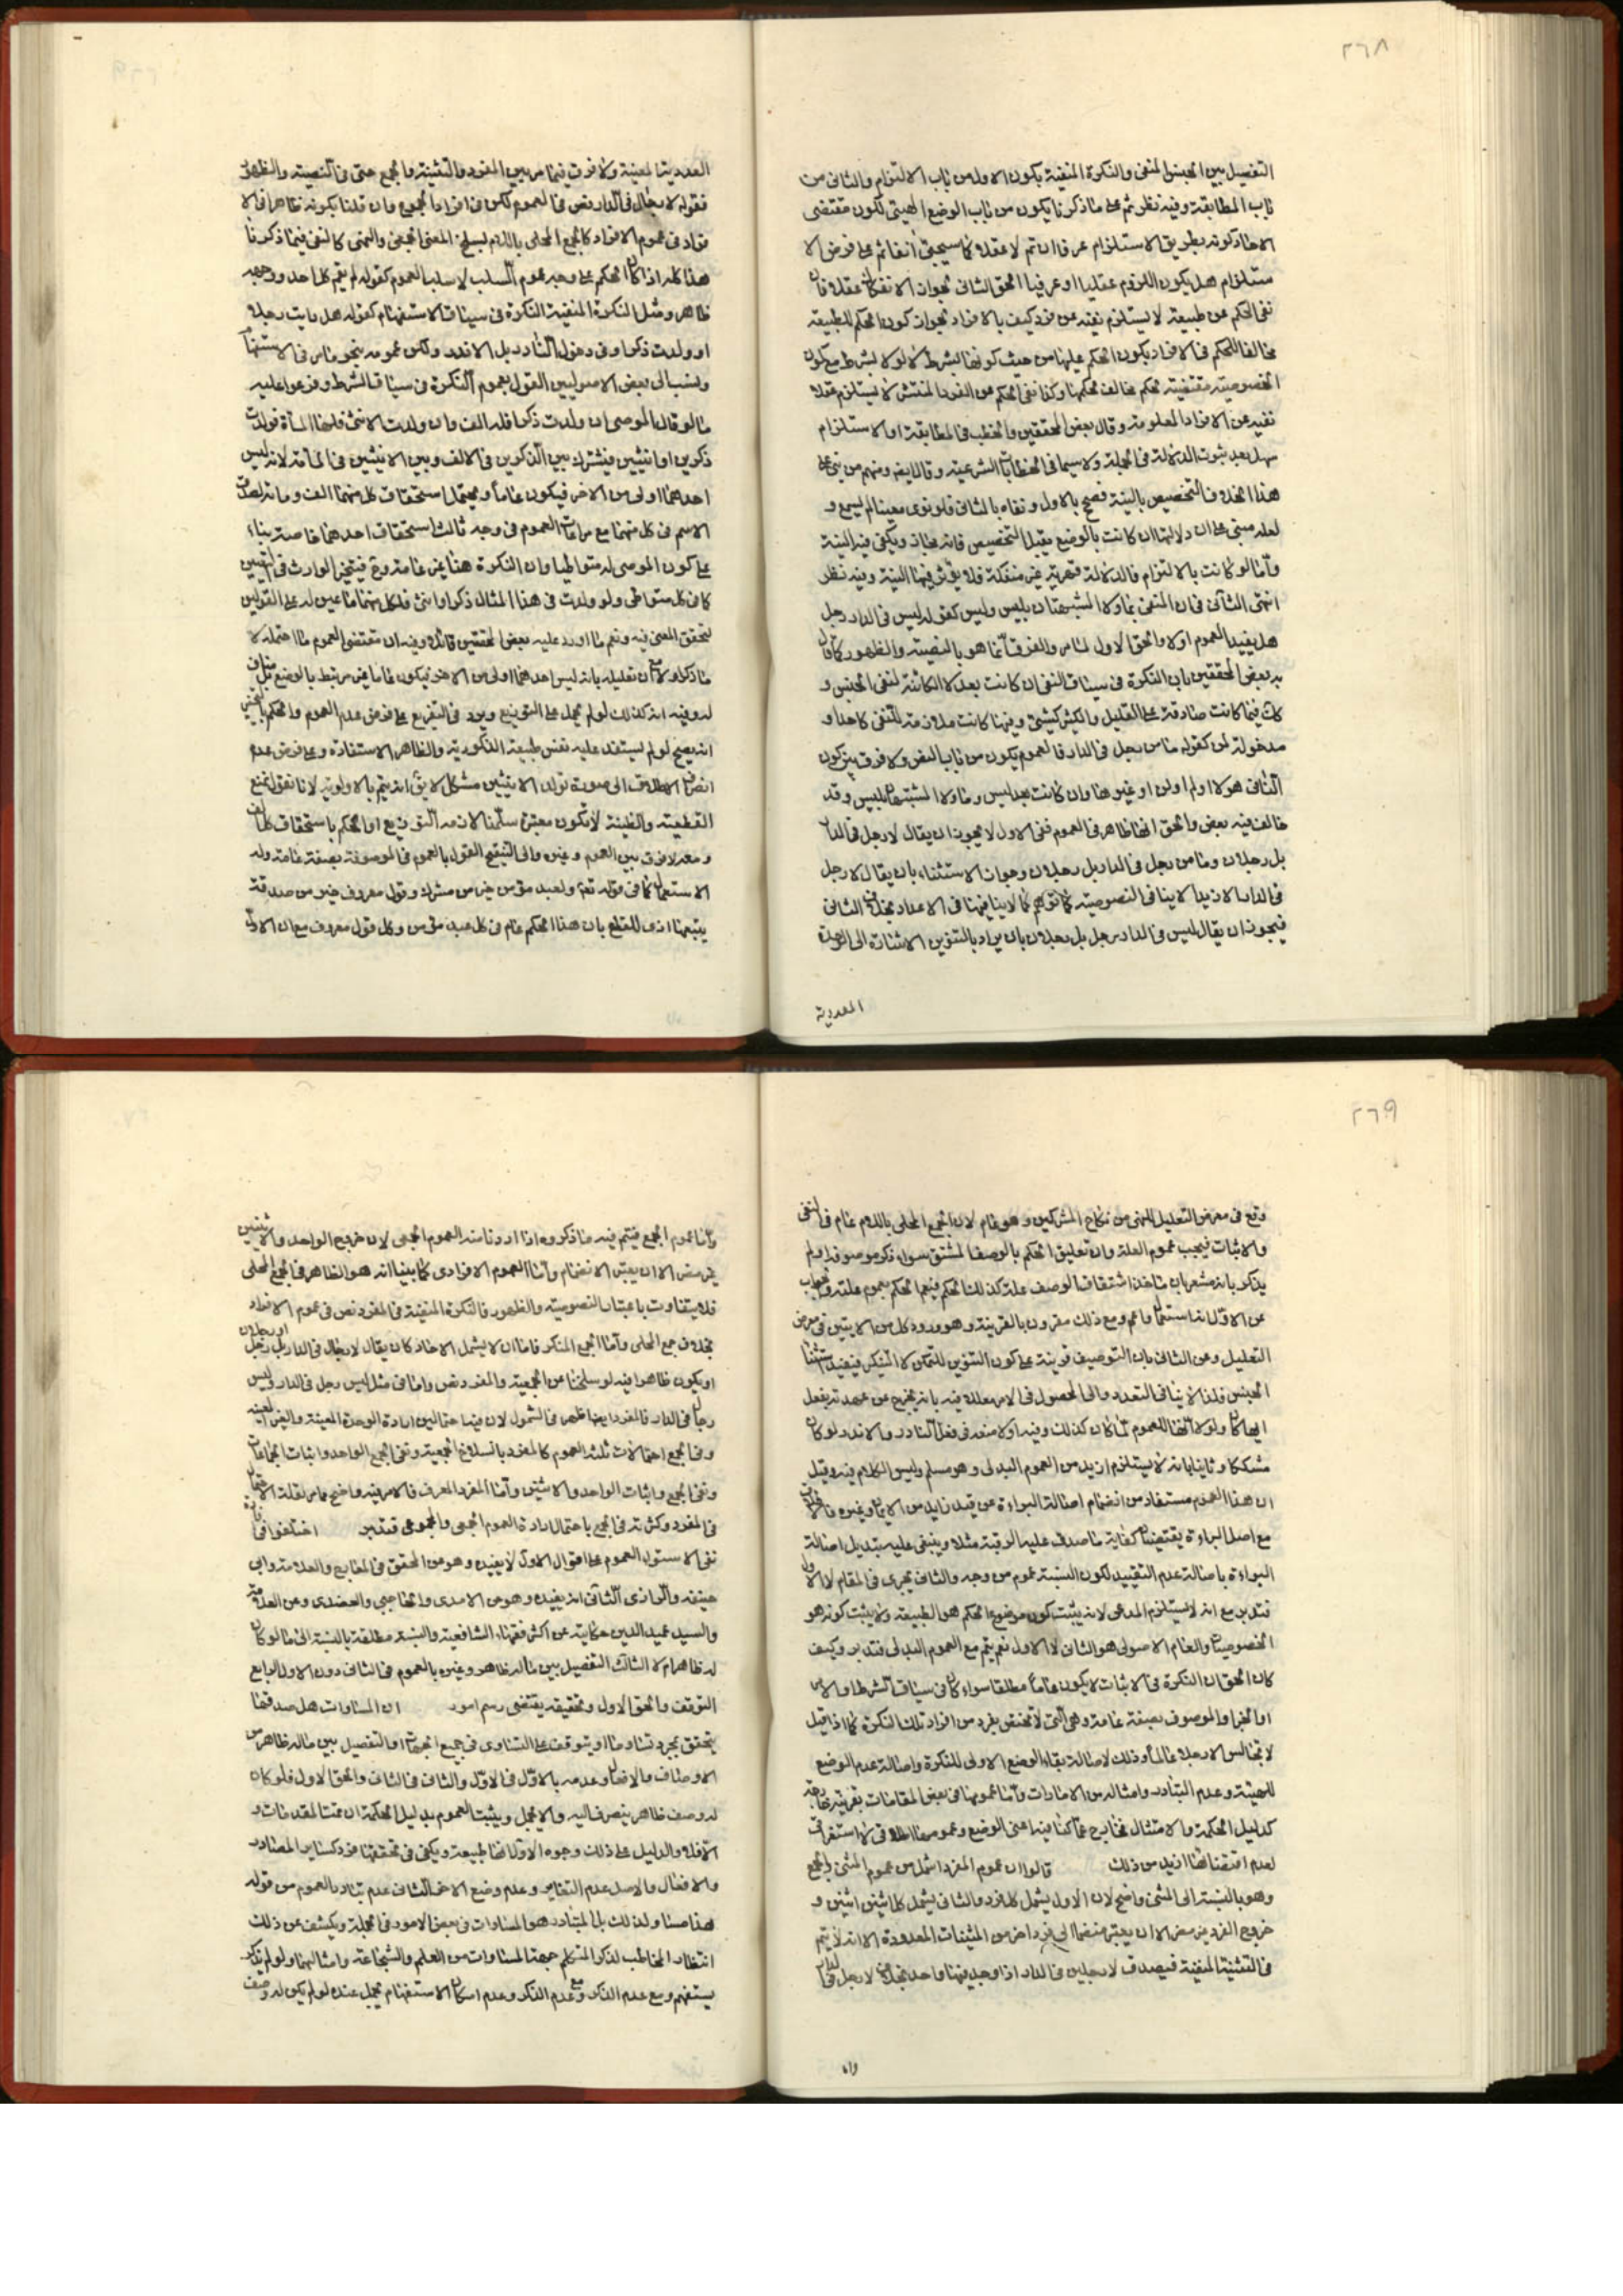 ٢٦٨
التفصيل بين الجنس المنفى والنكرة المنفية بكون الاول من باب الالتزام والثانى من
باب المطابقة وفيه نظر ثم على ما ذكرنا يكون من باب الوضع الهيئتى لكون مقتضى
مستلزام هل يكون اللزوم عقليا او عرفيا الحق الثانى لجواز الانفكاك عقلا فان
نفى الحكم عن طبيعة لا يستلزم نفيه عن فرد كيف بالافراد لجواز كون الحكم للطبيعة
مخالفا للحكم فى الافراد بكون الحكم عليها من حيث كونها بشرط لا او لا بشرط مع كون
الخصوصية مقتضية لحكم مخالف لحكمها وكذا نفى الحكم عن الفرد المنتشر لا يستلزم عقلا
نفيه عن الافراد المعلومة وقال بعض المحققين والخطب فى المطابقة او الاستلزام
سهل بعد ثبوت الدلالة فى الجملة ولا سيما فى الخطابات الشرعية وقال ايضا ومنهم من بنى على
هذا الخلاف التخصيص بالنية فصح بالاول ونفاه بالثانى فلو نوى معينا لم يسمع و
لعله مبنى على ان دلالتها ان كانت بالوضع يقبل التخصيص فانه مجاز ويكفى فيه النية
واما لو كانت بالالتزام فالدلالة قهرية غير منفكة فلا يؤثر فيها النية وفيه نظر
انتهى الثانى فى ان المنفى بما ولا المشبهتان بليس وليس كقوله ليس فى الدار رجل
هل يفيد العموم اولا والحق الاول لما مر والفرق انما هو بالنصية والظهور كما قال
به بعض المحققين بان النكرة فى سياق النفى ان كانت بعد لا الكائنة لنفى الجنس و
كانت فيما كانت صادقة على القليل والكثير كشئ وفيما كانت ملازمة للنفى كاحد او
مدخولة لمن كقوله ما من رجل فى الدار فالعموم يكون من باب النص ولا فرق بين كون
النافى هو لا او لم او لن او غيرها وان كانت بعد ليس وما ولا المشبهتان بليس وقد
خالف فيه بعض والحق انها ظاهر فى العموم ففى الاول لا يجوز ان يقال لا رجل فى الدار
بل رجلان وما من رجل فى الدار بل رجلان وجواز الاستثناء بان يقال لا رجل
فى الدار الا زيدا لا ينافى النصوصية كما توهم كما لا ينافيها فى الاعداد بخلاف الثانى
فيجوز ان يقال ليس فى الدار رجل بل رجلان بان يراد بالتنوين الاشارة الى الوحدة
العددية
العددية المعينة ولا فرق فيما مر بين المفرد والتثنية والجمع حتى فى النصية والظهور
فقوله لا رجال فى الدار نص فى العموم لكن فى افراد الجموع وان قلنا بكونه ظاهرا فى الا
فراد فى عموم الافراد كالجمع المحلى باللام لسلخ المعنى الجمعى والنهى كالنفى فيما ذكرنا
هذا كله اذا كان الحكم على وجه عموم السلب لا سلب العموم كقوله لم يقم كل احد ووجهه
ظاهر ومثل النكرة المنفية النكرة فى سياق الاستفهام كقوله هل رايت رجلا
او ولدت ذكرا وفى دخول النادر بل الاندر ولكن عمومه بنحو ما مر فى الاستفهام
ونسب الى بعض الاصوليين القول بعموم النكرة فى سياق الشرط وفرعوا عليه
ما لو قال الموصى ان ولدت ذكرا فله الف وان ولدت الانثى فلها المأة فولدت
ذكرين او انثيين فيشترك بين الذكرين فى الالف وبين الانثيين فى المأة لانه ليس
احدهما اولى من الاخر فيكون عاما ويحتمل استحقاق كل منهما الف ومائة لصدق
الاسم فى كل منهما مع مراعات العموم فى وجه ثالث استحقاق احدهما خاصة بناء
على كون الموصى له متواطيا وان النكرة هنا غير عامة وح فيتخير الوارث فى التعيين
كما فى كل متواطى ولو ولدت فى هذا المثال ذكرا وانثى فلكل منهما ما عين له على القولين
لتحقق المعنى فيه ونعم ما اورد عليه بعض المحققين قائلا وفيه ان مقتضى العموم ما احتمله لا
ما ذكراولا مع ان تعليله بانه ليس احدهما اولى من الاخر فيكون عاما غير مرتبط بالوضع بل مناف
القطعية والظنية لا تكون معتبرة سلمنا لازمه التوزيع او الحكم باستحقاق كل الف
ومعه لا فرق بين العموم وغيره والى التنقيح القول بالعموم فى الموصوفة بصفة عامة وله
الاستعمال كما فى قوله تعالى ولعبد مؤمن خير من مشرك وقول معروف خير من صدقة
يتبعها اذى للقطع بان هذا الحكم عام فى كل عبد مؤمن وكل قول معروف مع ان الاول
٢٦٩
وقع فى معرض التعليل للنهى من نكاح المشركين وهو عام لان الجمع المحلى باللام عام فى النفى
والاثبات فيجب عموم العلة وان تعليق الحكم بالوصف المشتق سواء ذكر موصوفه او لم
يذكر بانه مشعر بان ماخذ اشتقاق الوصف علة كذلك الحكم فيعم الحكم بعموم علته والجواب
عن الاول انه استعمال واعم ومع ذلك مقرون بالقرينة وهو ورود كل من الايتين فى معرض
التعليل وعن الثانى بان التوصيف قرينة على كون التنوين للتمكن لا التنكير فيفيد
الجنس فلذا لا ينافى التعدد
مشككا وثانيا بانه لا يستلزم ازيد من العموم البدلى وهو مسلم وليس الكلام فيه وقيل
ان هذا العموم مستفاد من انضمام اصالة البراءة عن قيد زايد من الايمان وغيره فالاطلاق
مع اصل البراءة يقتضيان كفاية ما صدق عليه الرقبة مثلا وينبغى عليه تبديل اصالة
البراءة باصالة عدم التقييد لكون النسبة عموم من وجه والثانى يجرى فى المقام لا الاول
فتدبر مع انه لا يستلزم المدعى لانه يثبت كون موضوع الحكم هو الطبيعة ولا يثبت كونه هو
الخصوصيات والعام الاصولى هو الثانى لا الاول نعم يتم مع العموم البدلى فتدبر وكيف
كان الحق ان النكرة فى الاثبات لا يكون عاما مطلقا سواء كان فى سياق الشرط او الامر
او الخبر او الموصوف بصفة عامة وهى التى لا تختص بفرد من افراد تلك النكرة كما اذا قيل
لا تجالس الا رجلا عالما وذلك لاصالة بقاء الوضع الاولى للنكرة واصالة عدم الوضع
للهيئة وعدم التبادر وامثاله من الامارات واما عمومها فى بعض المقامات بقرينة خارجة
كدليل الحكمة والامتثال فخارج عما كنا فيه اعنى الوضع وعمومها اطلاقى لا استغراقى
لعدم اقتضائها ازيد من ذلك قالوا ان عموم المفرد اشمل من عموم المثنى والجمع
وهو بالنسبة الى المثنى واضح لان الاول يشمل كل فرد والثانى يشمل كل اثنين اثنين و
خروج الفرد غير مضر الا ان يعتبر منضما الى فرد اخر من المثنيات المعدودة الا انه لا يتم
فى التثنية المنفية فيصدق لا رجلين فى الدار اذا وجد فيها واحد بخلاف لا رجل فى الدار
واما
واما عموم الجمع فيتم فيه ما ذكروه اذا اردنا منه العموم الجمعى لان خروج الواحد والاثنين
غير مضر الا ان يعتبر الانضمام واما العموم الافرادى كما بينا انه هو الظاهر فى الجمع المحلى
فلا يتفاوت باعتبار النصوصية والظهور فالنكرة المنفية فى المفرد نص فى عموم الافراد
بخلاف جمع المحلى واما الجمع المنكر فاما ان لا يشمل الاحاد كان يقال لا رجال فى الدار بل رجل
او رجلان
او يكون ظاهرا فيه لو سلخنا عن الجمعية والمفرد نص واما فى مثل ليس رجل فى الدار وليس
رجال فى الدار فالمفرد ايضا اظهر فى الشمول لان فيها احتمالين ارادة الوحدة المعينة والغير المعينة
وفى الجمع احتمالات ثلثة العموم كالمفرد بانسلاخ الجمعية ونفى الجمع الواحد واثبات الجماعات
ونفى الجمع واثبات الواحد والاثنين واما المفرد المعرف فالامر فيه واضح مما مر لقلة الاحتمال
فى المفرد وكثرته فى الجمع باحتمال ارادة العموم الجمعى والمجموعى فتدبر اختلفوا فى ان
نفى الاستواء العموم على اقوال الاول لا يفيده وهو من المحقق فى المعارج والعلامة وابى
حنيفه والرازى الثانى انه يفيده وهو من الامدى والحاجبى والعضدى وعن العلامة
والسيد عميد الدين حكايته عن اكثر فقهاء الشافعية والنسبة مطلقة بالنسبة الى ما لو كان
له ظاهر ام لا الثالث التفصيل بين ماله ظاهر وغيره بالعموم فى الثانى دون الاول الرابع
التوقف والحق الاول وتحقيقه يقتضى رسم امور ان المساوات هل صدقها
يتحقق بمجرد تساو ما او يتوقف على التساوى فى جميع الجهات او التفصيل بين ماله ظاهر من
الاوصاف والافعال وعدمه بالاول فى الاول والثانى فى الثانى والحق الاول فلو كان
له وصف ظاهر ينصرف اليه والا يجمل ويثبت العموم بدليل الحكمة ان تمت المقدمات و
الا فلا والدليل على ذلك وجوه الاول انها طبيعة ويكفى فى تحققها فرد كساير المصادر
والافعال والاصل عدم التغاير وعدم وضع الاخص الثانى عدم تبادر العموم من قوله
هذا مساو لذلك بل المتبادر هو المساوات فى بعض الامور فى الجملة ويكشف عن ذلك
انتظار المخاطب لذكر المتكلم جهة المساوات من العلم والشجاعة وامثالهما ولو لم يذكر
يستفهم ومع عدم الذكر وعدم امكان الاستفهام يجمل عنده لو لم يكن له وصف